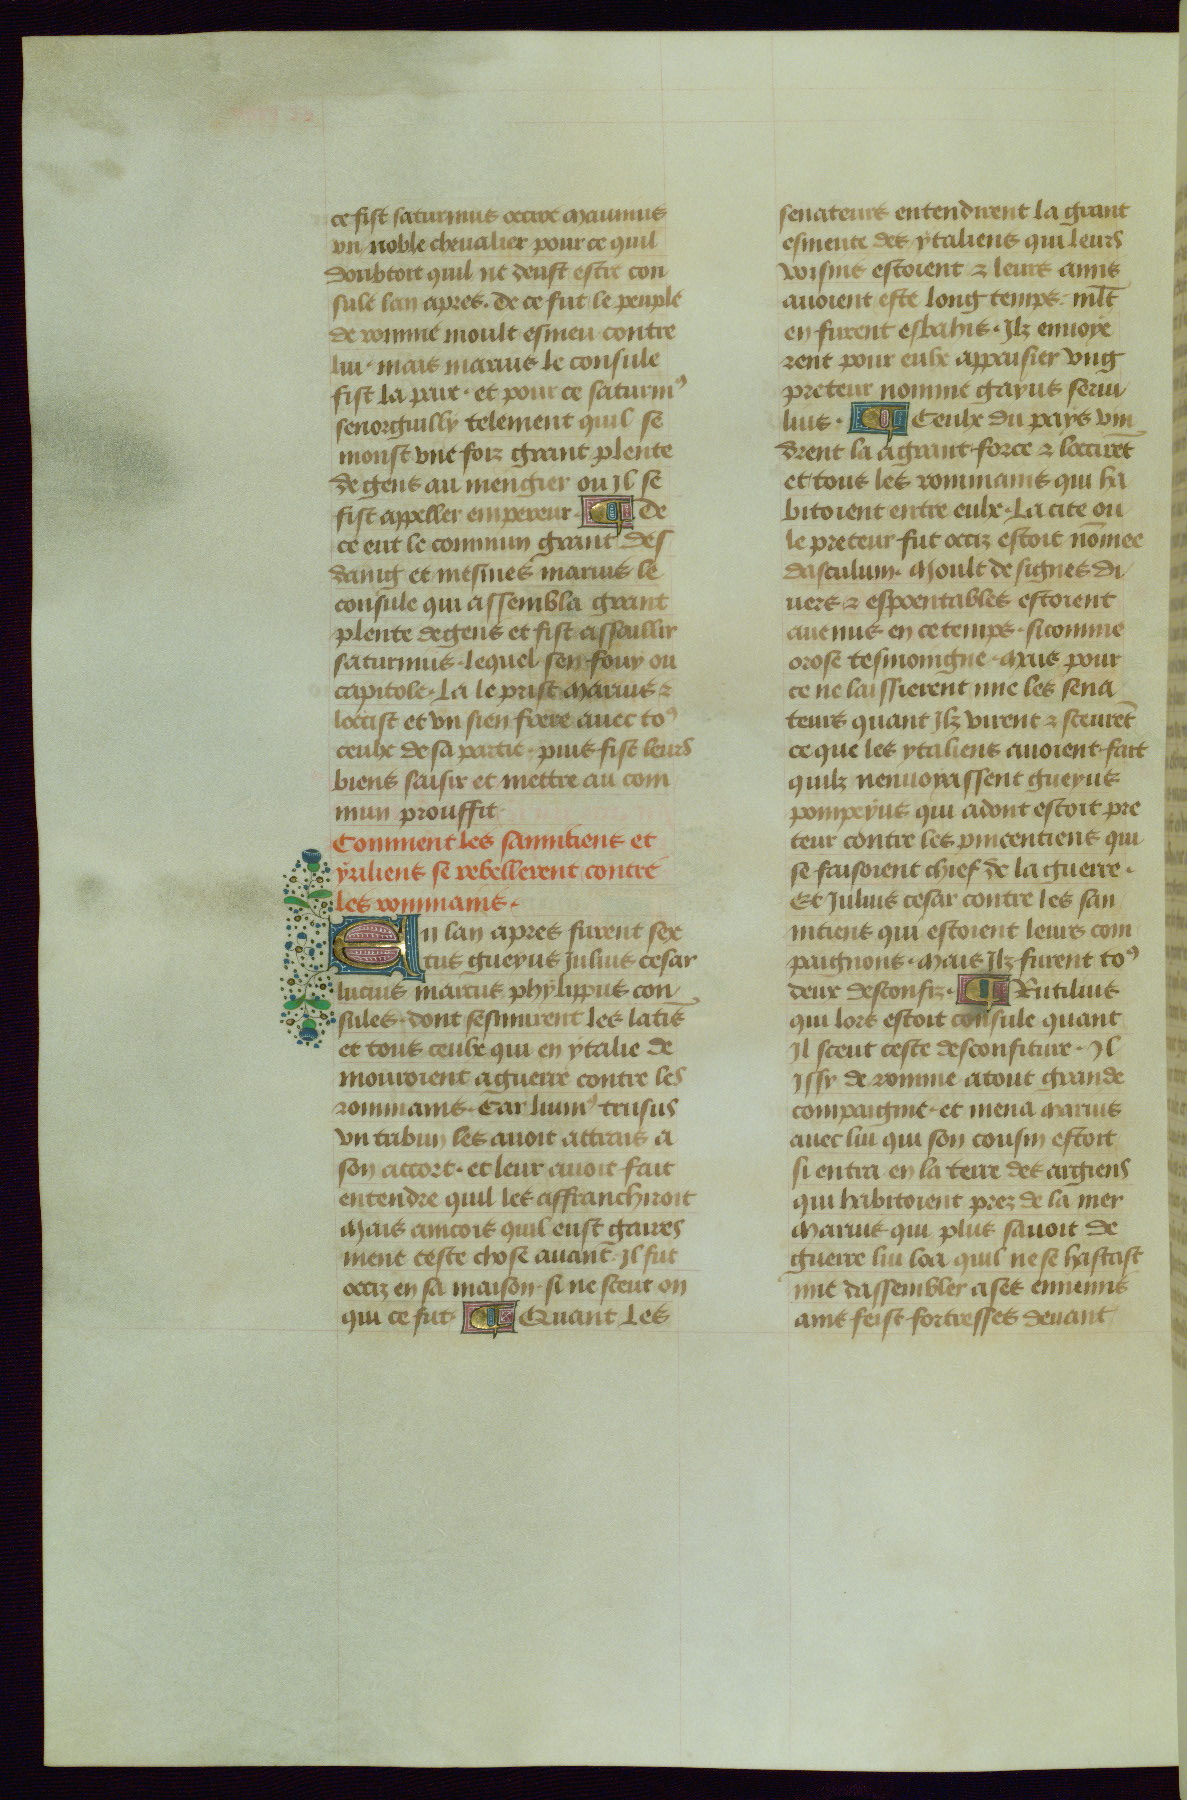 ce fist saturnius occire Maumus
vn noble cheualier pour ce quil
doubtoit quil ne deust estre con
sule lan apres. De ce fut le peuple
de romme moult esmeu contre
lui. mais marius le consule
fist la paix. et pour ce saturniꝰ
senorguilly telement quil se
monst vne foiz grant plente
de gens au mengier ou Il se
fist appeller empereur. De
ce eut le commun grant des
daing et mesmes marius le
consule qui assembla grant
plente de gens et fist assaillir
saturnius. lequel sen fouy ou
capitole. La le prist Marius ⁊
loccist et vn sien frere auec toꝰ
ceulx de sa partie. puis fist leurs
biens saisir et mettre au com
mun prouffit.
Comment les sannitiens et
ytaliens se rebellerent contre
les rommains.
En lan apres furent sex
tus gueyus Julius cesar
lucius marcus phylippus con
sules. dont sesmurent les latīs
et tous ceulx qui en ytalie de
mouroient a guerre contre les
rommains. Car liuiuꝰ trusus
vn tribun les auoit attrais a
son accort. et leur auoit fait
entendre quil les affranchiroit
Mais aincois quil eust gaires
mene ceste chose auant. Il fut
occiz en sa maison. si ne sceut on
qui ce fut. Quant les
senateurs entendirent la grant
esmeute des ytaliens qui leurs
voisins estoient ⁊ leurs amis
auoient este long temps. ml̄t
en furent esbahis. Ilz enuoye
rent pour eulx appaisier vng
preteur nomme gayus serui
lius. Ceulx du pays vin
drent la a grant force ⁊ locciret̄
et tous les rommains qui ha
bitoient entre eulx. La cite ou
le preteur fut occiz estoit nōmee
dasculum. Moult de signes di
uers ⁊ espoentables estoient
auenus en ce temps. si comme
orose tesmoingne. Mais pour
ce ne laissierent mie les sena
teurs quant Ilz virent ⁊ sceuret̄
ce que les ytaliens auoient fait
quilz nenuoyassent gueyus
pompeyus qui adont estoit pre
teur contre les pincentiens qui
se faisoient chief de la guerre.
Et Julius cesar contre les san
nitiens qui estoient leurs com
paignons. Mais Ilz furent toꝰ
deux desconfiz. Rutilius
qui lors estoit consule quant
Il sceut ceste desconfiture. Il
Issy de romme atout grande
compaignie. et mena Marius
auec lui qui son cousin estoit
si entra en la terre des argiens
qui habitoient prez de la mer
Marius qui plus sauoit de
guerre lui loa quil ne se hastast
mie dassembler a ses ennemis
ains feist fortresses deuant